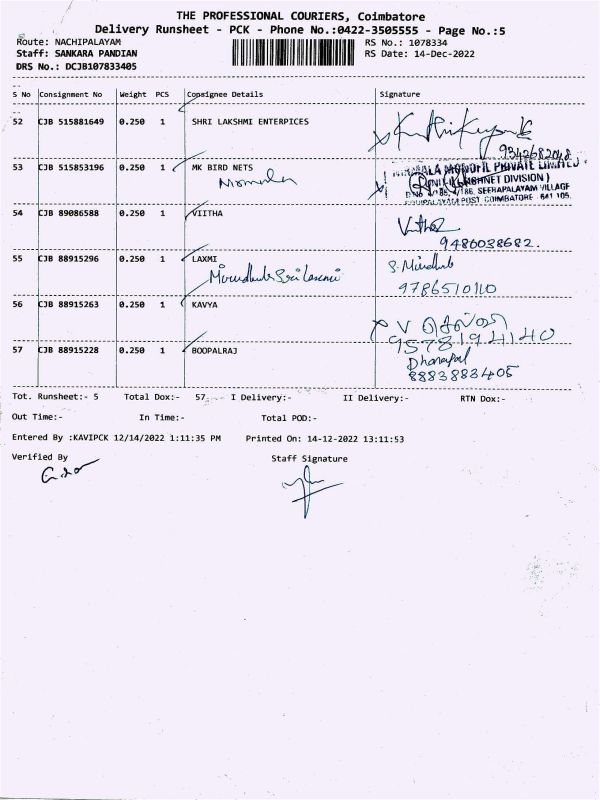 THE PROFESSIONAL COURIERS, Coimbatore
Delivery Runsheet - PCK - Phone No.:0422-3505555 - Page No.:5
Route: NACHIPALAYAM RS No.: 1078334
Staff: SANKARA PANDIAN RS Date: 14-Dec-2022
DRS No.: DCJB107833405
S No Consignment No Weight PCS Consignee Details Signature
52 CJB 515881649 0.250 1 SHRI LAKSHMI ENTERPICES
9342682048
53 CJB 515853196 0.250 1 MK BIRD NETS
MONOFIL PRIVATE LIMITED
DIVISION)
SEERAPALAYAM VILLAGE
POST COIMBATORE 641 105.
54 CJB 89086588 0.250 1 VIITHA
9486038682.
55 CJB 88915296 0.250 1 LAXMI
S. Mirudhub
9786510110
56 CJB 88915263 0.250 1 KAVYA
9578194140
57 CJB 88915228 0.250 1 BOOPALRAJ
Dhanapal
8883883405
Tot. Runsheet:- 5 Total Dox:- 57 I Delivery:- II Delivery:- RTN Dox:-
Out Time:- In Time:- Total POD:-
Entered By :KAVIPCK 12/14/2022 1:11:35 PM Printed On: 14-12-2022 13:11:53
Verified By Staff Signature